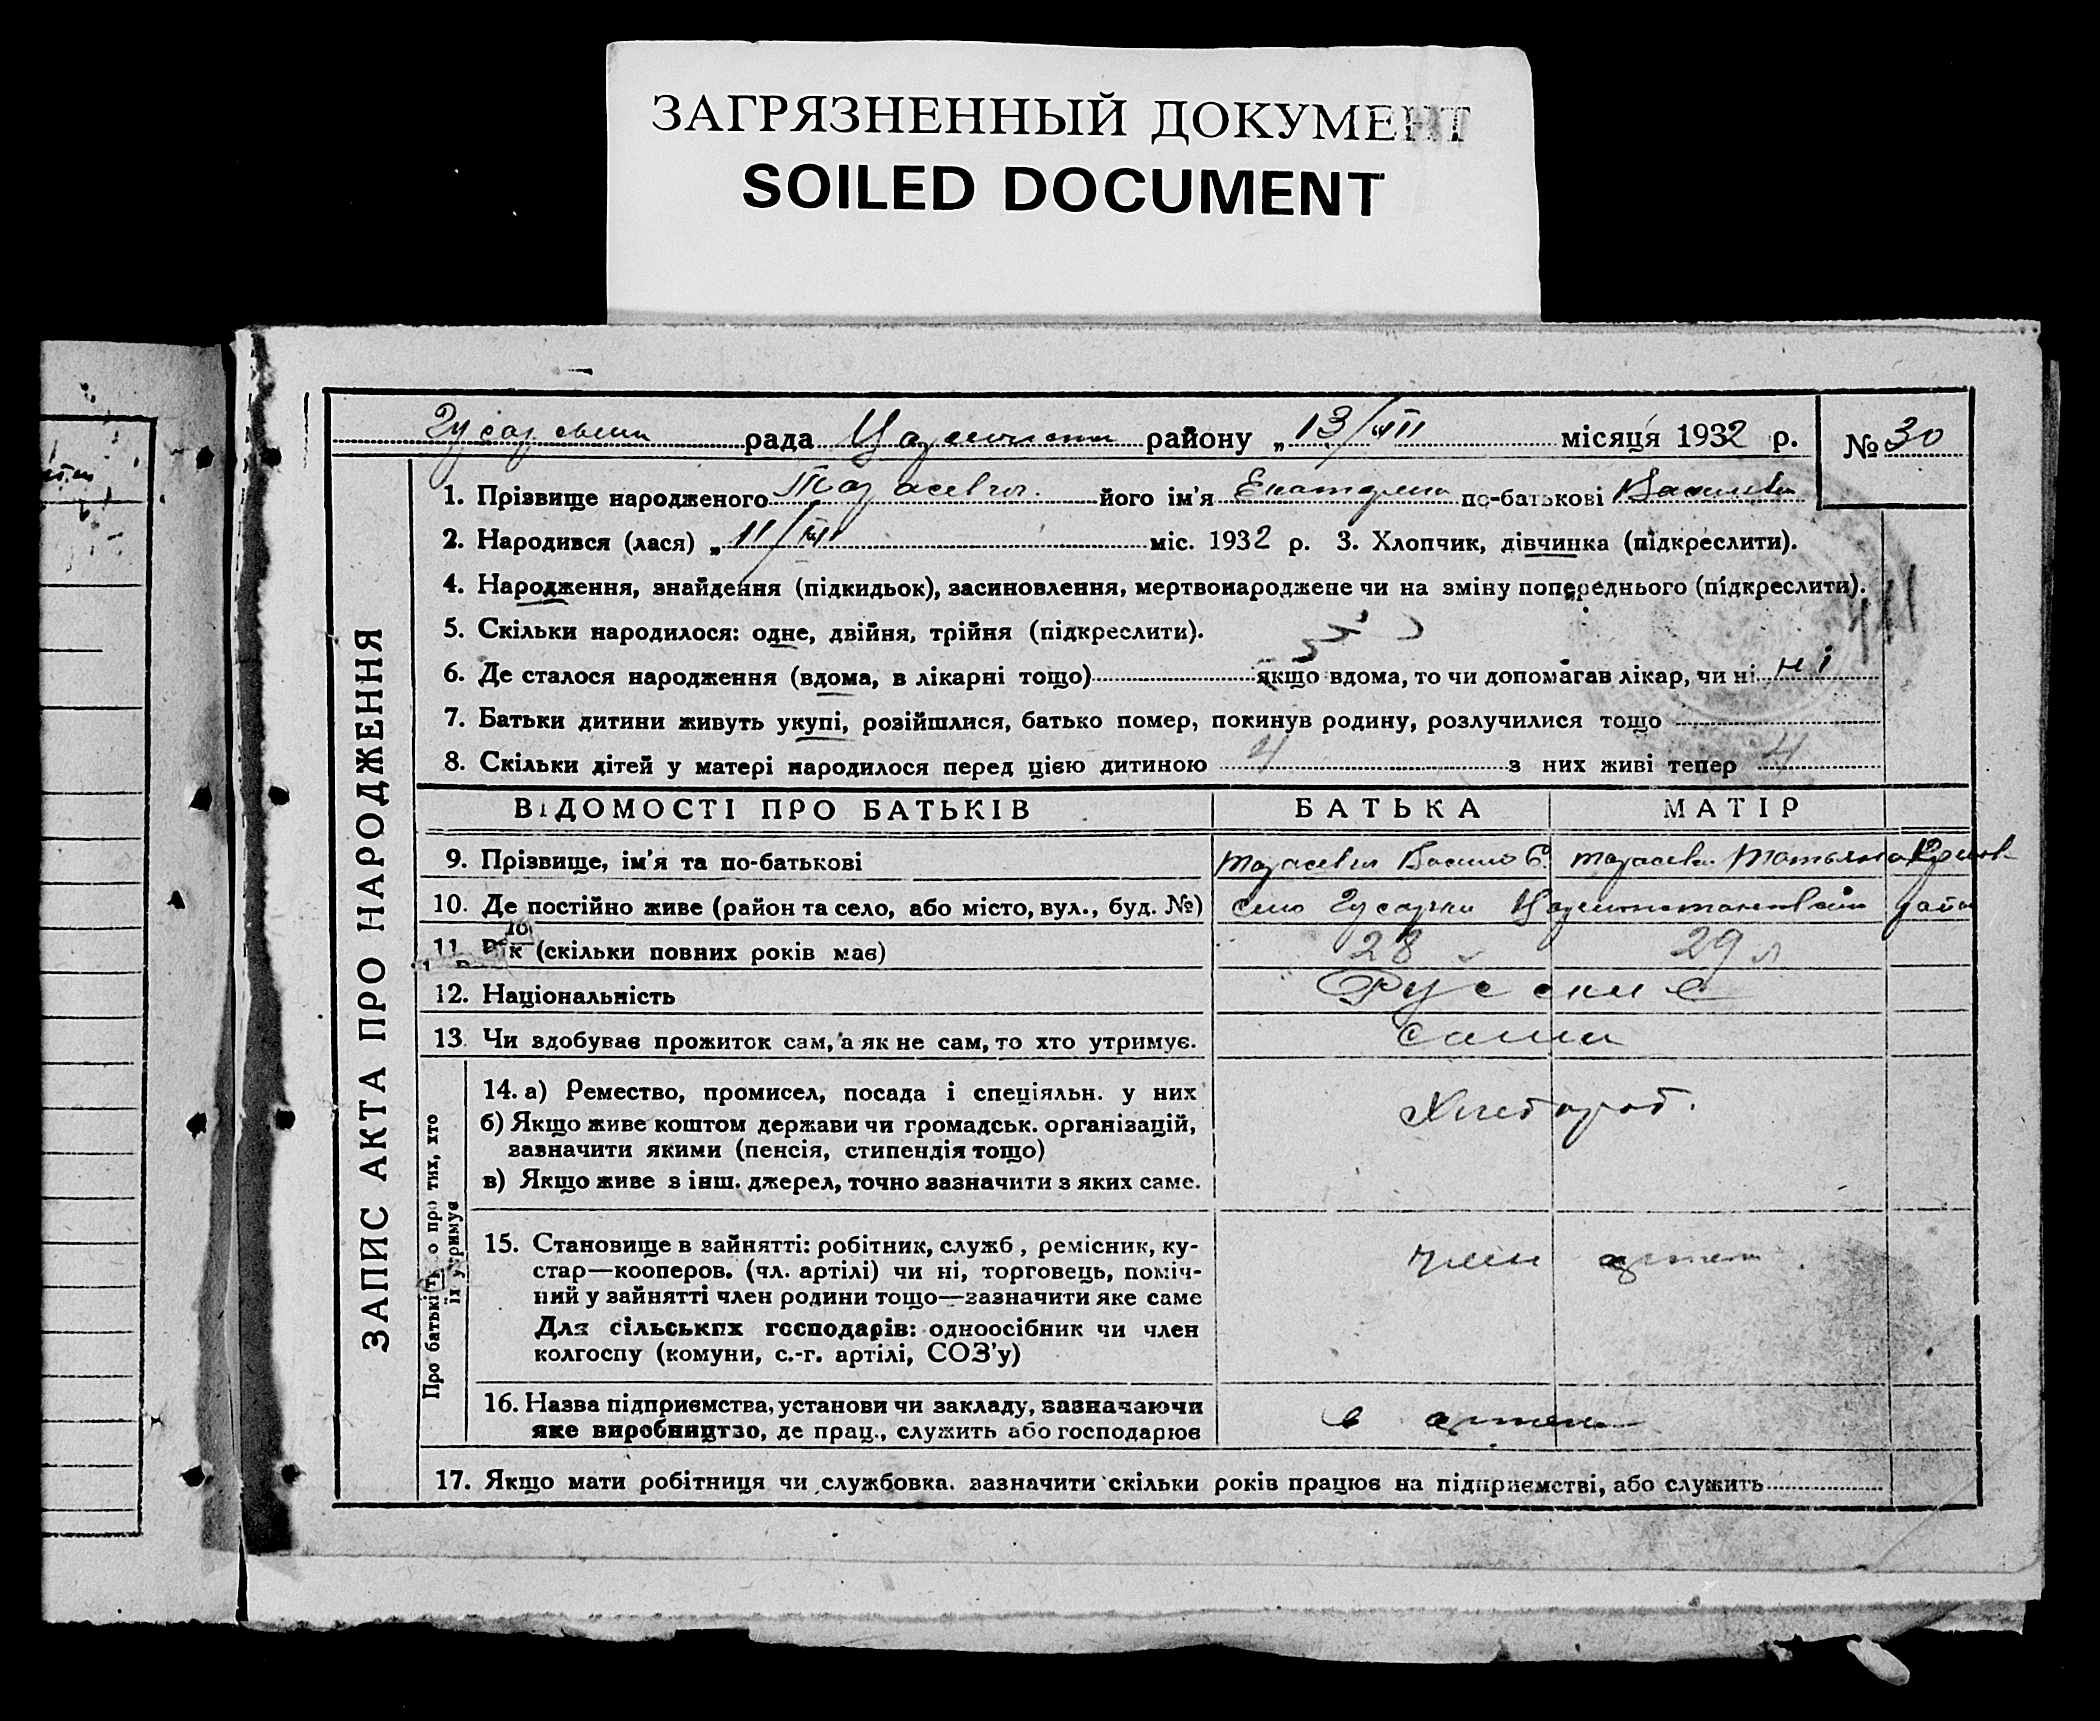 ЗАГРЯЗНЕННЫЙ ДОКУМЕНТ
SOILED DOCUMENT
рада району „13/VII місяця 1932 р. № 30
ЗАПИС АКТА ПРО НАРОДЖЕННЯ
1. Прізвище народженого його ім'я по-батькові
2. Народився (лася) „11/VII міс. 1932 р. 3. Хлопчик, дівчинка (підкреслити).
4. Народження, знайдення (підкидьок), засиновлення, мертвонароджене чи на зміну попереднього (підкреслити).
5. Скільки народилося: одне, двійня, трійня (підкреслити).
6. Де сталося народження (вдома, в лікарні тощо) якщо вдома, то чи допомагав лікар, чи ні ні
7. Батьки дитини живуть укупі, розійшлися, батько помер, покинув родину, розлучилися тощо
8. Скільки дітей у матері народилося перед цією дитиною 4 з них живі тепер 4
ВІДОМОСТІ ПРО БАТЬКІВ БАТЬКА МАТІР
9. Прізвище, ім'я та по-батькові
10. Де постійно живе (район та село, або місто, вул., буд. №) село
11. Вік (скільки повних років має) 28 29 л
12. Національність Русские
13. Чи здобуває прожиток сам, а як не сам, то хто утримує. сами
Про батьків, о про тих, хто їх утримує
14. а) Ремество, промисел, посада і спеціяльн. у них Хлебороб.
б) Якщо живе коштом держави чи громадськ. організацій,
зазначити якими (пенсія, стипендія тощо)
в) Якщо живе з інш. джерел, точно зазначити з яких саме.
15. Становище в зайнятті: робітник, служб., ремісник, ку-
стар—кооперов. (чл. артілі) чи ні, торговець, поміч-
ний у зайнятті член родини тощо—зазначити яке саме член артели
Для сільських господарів: одноосібник чи член
колгоспу (комуни, с.-г. артілі, СОЗ'у)
16. Назва підприємства, установи чи закладу, зазначаючи
яке виробництво, де прац., служить або господарює в артели
17. Якщо мати робітниця чи службовка. зазначити скільки років працює на підприємстві, або служить